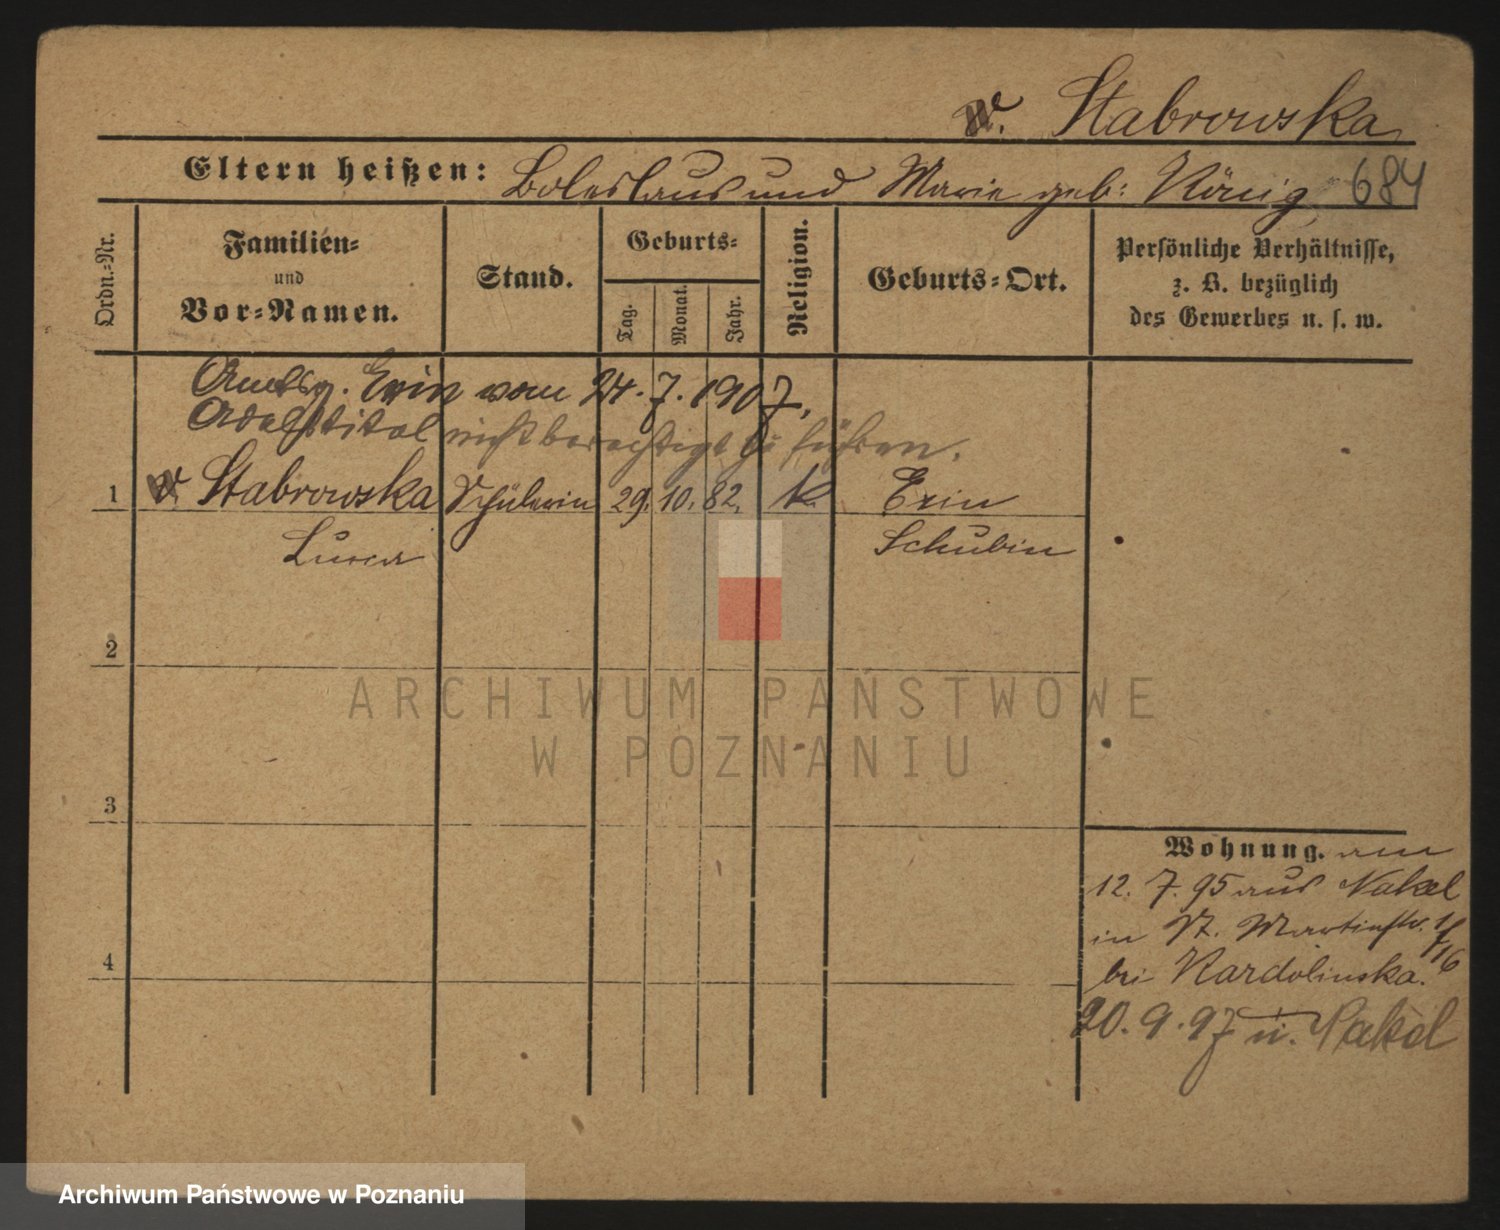 v. Stabrowska
Eltern heißen: Boleslaus und Marie geb: König 684
Ordn.-Nr.
Familien-
und
Vor-Namen.
Stand.
Geburts-
Tag.
Monat.
Jahr.
Religion.
Geburts-Ort.
Persönliche Verhältnisse,
z. B. bezüglich
des Gewerbes u. s. w.
Amtsg. Exin vom 24.7.1907,
Adelstitel nicht berechtigt zu führen.
1 v. Stabrowska Schülerin 29. 10. 82. k. Exin
Schubin
2
3
4
Wohnung. am
12. 7. 95 aus Nakel
in St. Martinstr.
bei Kardolinska.
20. 9. 97 n. Nakel
ARCHIWUM PAŃSTWOWE
W POZNANIU
Archiwum Państwowe w Poznaniu